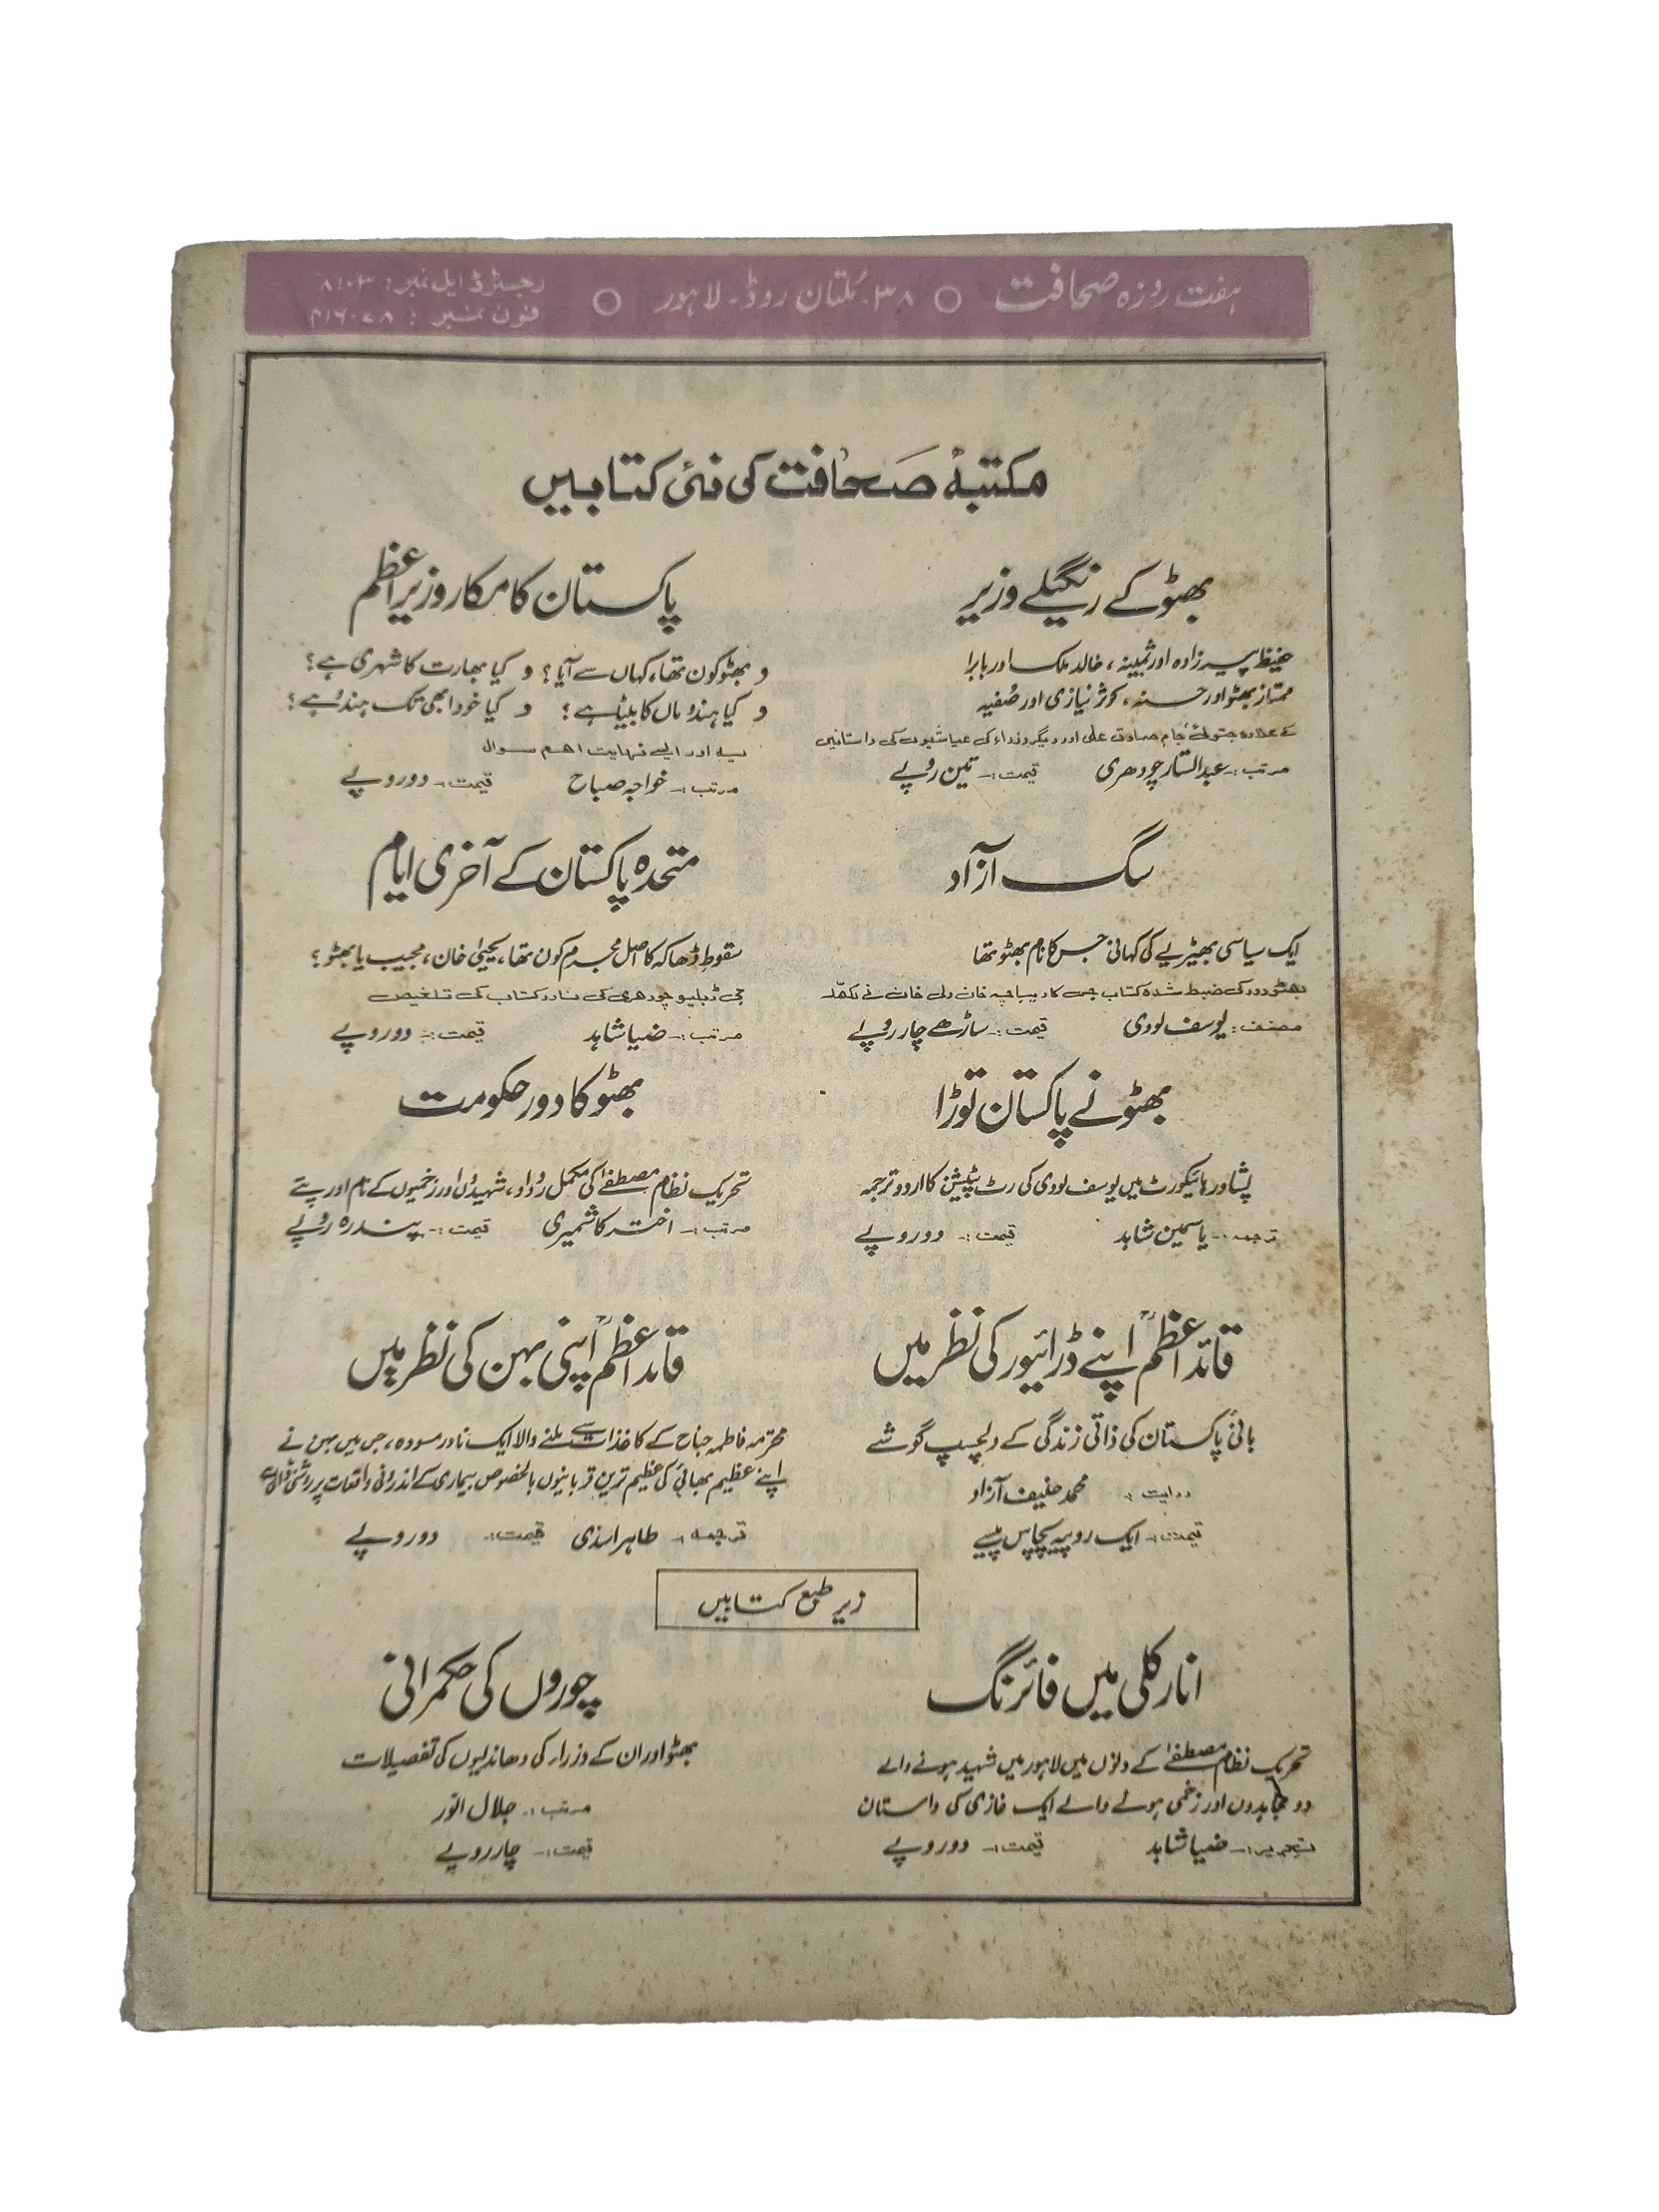 ہفت روزہ صحافت ○ ۳۸۔ مُلتان روڈ۔ لاہور ○
رجسٹرڈ ایل نمبر: ۸۱۰۳
فون نمبر:
مکتبۂ صحافت کی نئی کتابیں
بھٹو کے رنگیلے وزیر
حفیظ پیرزادہ اور ثمینہ، خالد ملک اور بابرا
ممتاز بھٹو اور حسنہ، کوثر نیازی اور صُفیہ
کے علاوہ جتوئی، جام صادق علی اور دیگر وزراء کی عیاشیوں کی داستانیں
مرتب:۔ عبدالستار چودھری قیمت:۔ تین روپے
پاکستان کا مکار وزیر اعظم
و بھٹو کون تھا، کہاں سے آیا؟ و کیا بھارت کا شہری ہے؟
و کیا ہندو ماں کا بیٹا ہے؟ و کیا خود ابھی تک ہندُو ہے؟
یہ اور ایسے نہایت اہم سوال
مرتب:۔ خواجہ صباح قیمت:۔ دو روپے
سگ آزاد
ایک سیاسی بھیڑیے کی کہانی جس کا نام بھٹو تھا
بھٹو دور کی ضبط شدہ کتاب جس کا دیباچہ خان ولی خان نے لکھا
مصنف: یوسف لودی قیمت:۔ ساڑھے چار روپے
متحدہ پاکستان کے آخری ایام
سقوطِ ڈھاکہ کا اصل مجرم کون تھا، یحییٰ خان، مجیب یا بھٹو؟
جی ڈبلیو چودھری کی نادر کتاب کی تلخیص
مرتب:۔ ضیا شاہد قیمت:۔ دو روپے
بھٹو نے پاکستان توڑا
پشاور ہائیکورٹ میں یوسف لودی کی رٹ پٹیشن کا اردو ترجمہ
ترجمہ:۔ یاسمین شاہد قیمت:۔ دو روپے
بھٹو کا دور حکومت
تحریک نظام مصطفےٰ کی مکمل رُوداد، شہیدوں اور زخمیوں کے نام اور پتے
مرتب:۔ اختر کاشمیری قیمت:۔ پندرہ روپے
قائد اعظمؒ اپنے ڈرائیور کی نظر میں
بانیٔ پاکستان کی ذاتی زندگی کے دلچسپ گوشے
روایت :۔ محمد حنیف آزاد
قیمت:۔ ایک روپیہ پچاس پیسے
قائد اعظمؒ اپنی بہن کی نظر میں
محترمہ فاطمہ جناح کے کاغذات سے ملنے والا ایک نادر مسودہ، جس میں بہن نے
اپنے عظیم بھائی کی عظیم ترین قربانیوں بالخصوص بیماری کے اندرونی واقعات پر روشنی ڈالی ہے
ترجمہ:۔ طاہر اسدی قیمت:۔ دو روپے
زیر طبع کتابیں
انارکلی میں فائرنگ
تحریک نظام مصطفےٰ کے دنوں میں لاہور میں شہید ہونے والے
دو مجاہدوں اور زخمی ہونے والے ایک غازی کی داستان
تحریر:۔ ضیا شاہد قیمت:۔ دو روپے
چوروں کی حکمرانی
بھٹو اور ان کے وزراء کی دھاندلیوں کی تفصیلات
مرتب:۔ جلال انور
قیمت:۔ چار روپے